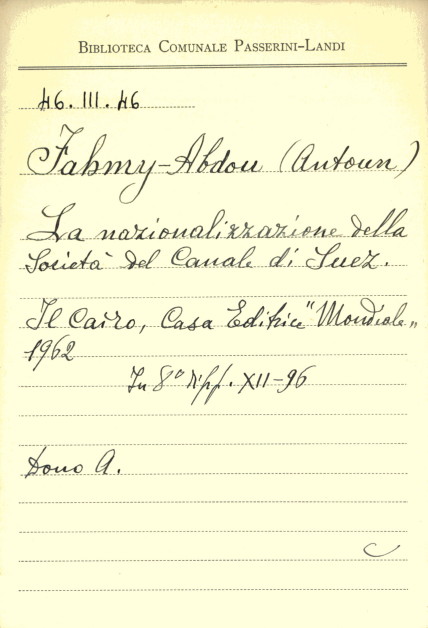 BIBLIOTECA COMUNALE PASSERINI-LANDI
46. III. 46
Fahmy-Abdou (Antoun)
La nazionalizzazione della
Società del Canale di Suez.
Il Cairo, Casa Editrice "Mondiale"
1962
In 8° pp. XII-96
Dono A.